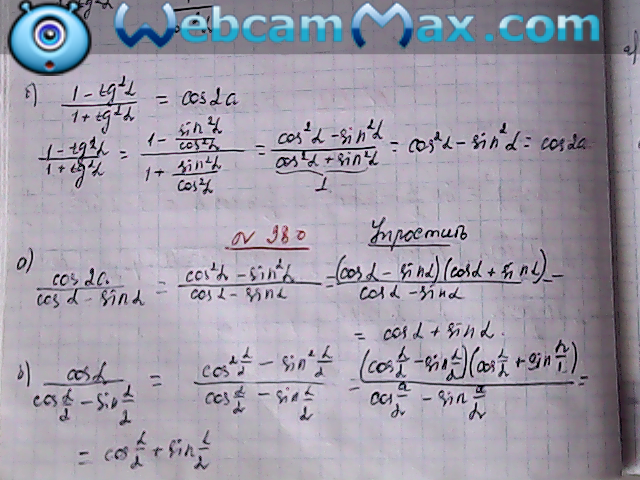 WebcamMax.com
б) (1 - tg²α)/(1 + tg²α) = cos2α
(1 - tg²α)/(1 + tg²α) = (1 - sin²α/cos²α)/(1 + sin²α/cos²α) = (cos²α - sin²α)/(cos²α + sin²α) = cos²α - sin²α = cos2α
1
№ 980 Упростить
а) cos2α/(cosα - sinα) = (cos²α - sin²α)/(cosα - sinα) = (cosα - sinα)(cosα + sinα)/(cosα - sinα) =
= cosα + sinα.
в) cosα/(cos α/2 - sin α/2) = (cos² α/2 - sin² α/2)/(cos α/2 - sin α/2) = (cos α/2 - sin α/2)(cos α/2 + sin α/2)/(cos α/2 - sin α/2) =
= cos α/2 + sin α/2